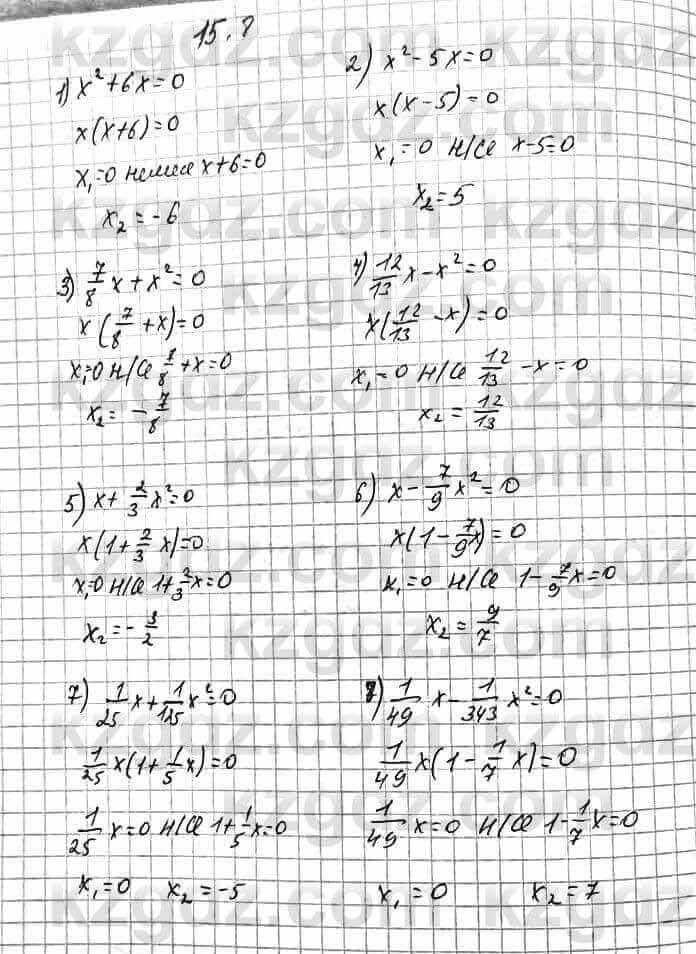 15.8
1) x²+6x=0
x(x+6)=0
x₁=0 немесе x+6=0
x₂=-6
2) x²-5x=0
x(x-5)=0
x₁=0 н/се x-5=0
x₂=5
3) 7/8 x+x²=0
x(7/8+x)=0
x₁=0 н/се 7/8+x=0
x₂=-7/8
4) 12/13 x-x²=0
x(12/13-x)=0
x₁=0 н/се 12/13-x=0
x₂=12/13
5) x+2/3 x²=0
x(1+2/3 x)=0
x₁=0 н/се 1+2/3 x=0
x₂=-3/2
6) x-7/9 x²=0
x(1-7/9 x)=0
x₁=0 н/се 1-7/9 x=0
x₂=9/7
7) 1/25 x+1/125 x²=0
1/25 x(1+1/5 x)=0
1/25 x=0 н/се 1+1/5 x=0
x₁=0 x₂=-5
8) 1/49 x-1/343 x²=0
1/49 x(1-1/7 x)=0
1/49 x=0 н/се 1-1/7 x=0
x₁=0 x₂=7
kzgdz.com